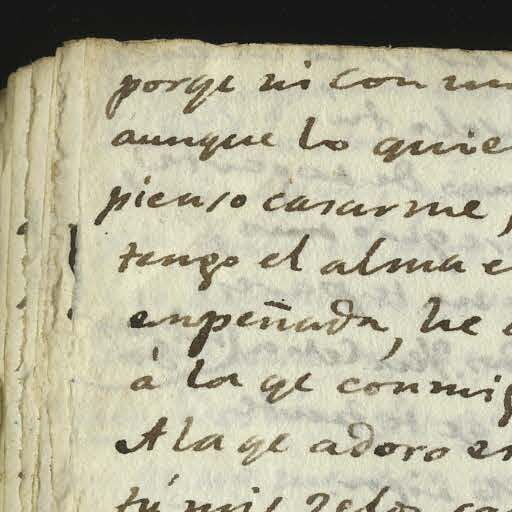 porqe ni con un
aunque lo quie
pienso casarme,
tengo el alma e
enpeñada, he
à la qe conmig
A la qe adoro en
tú mis zelos ca